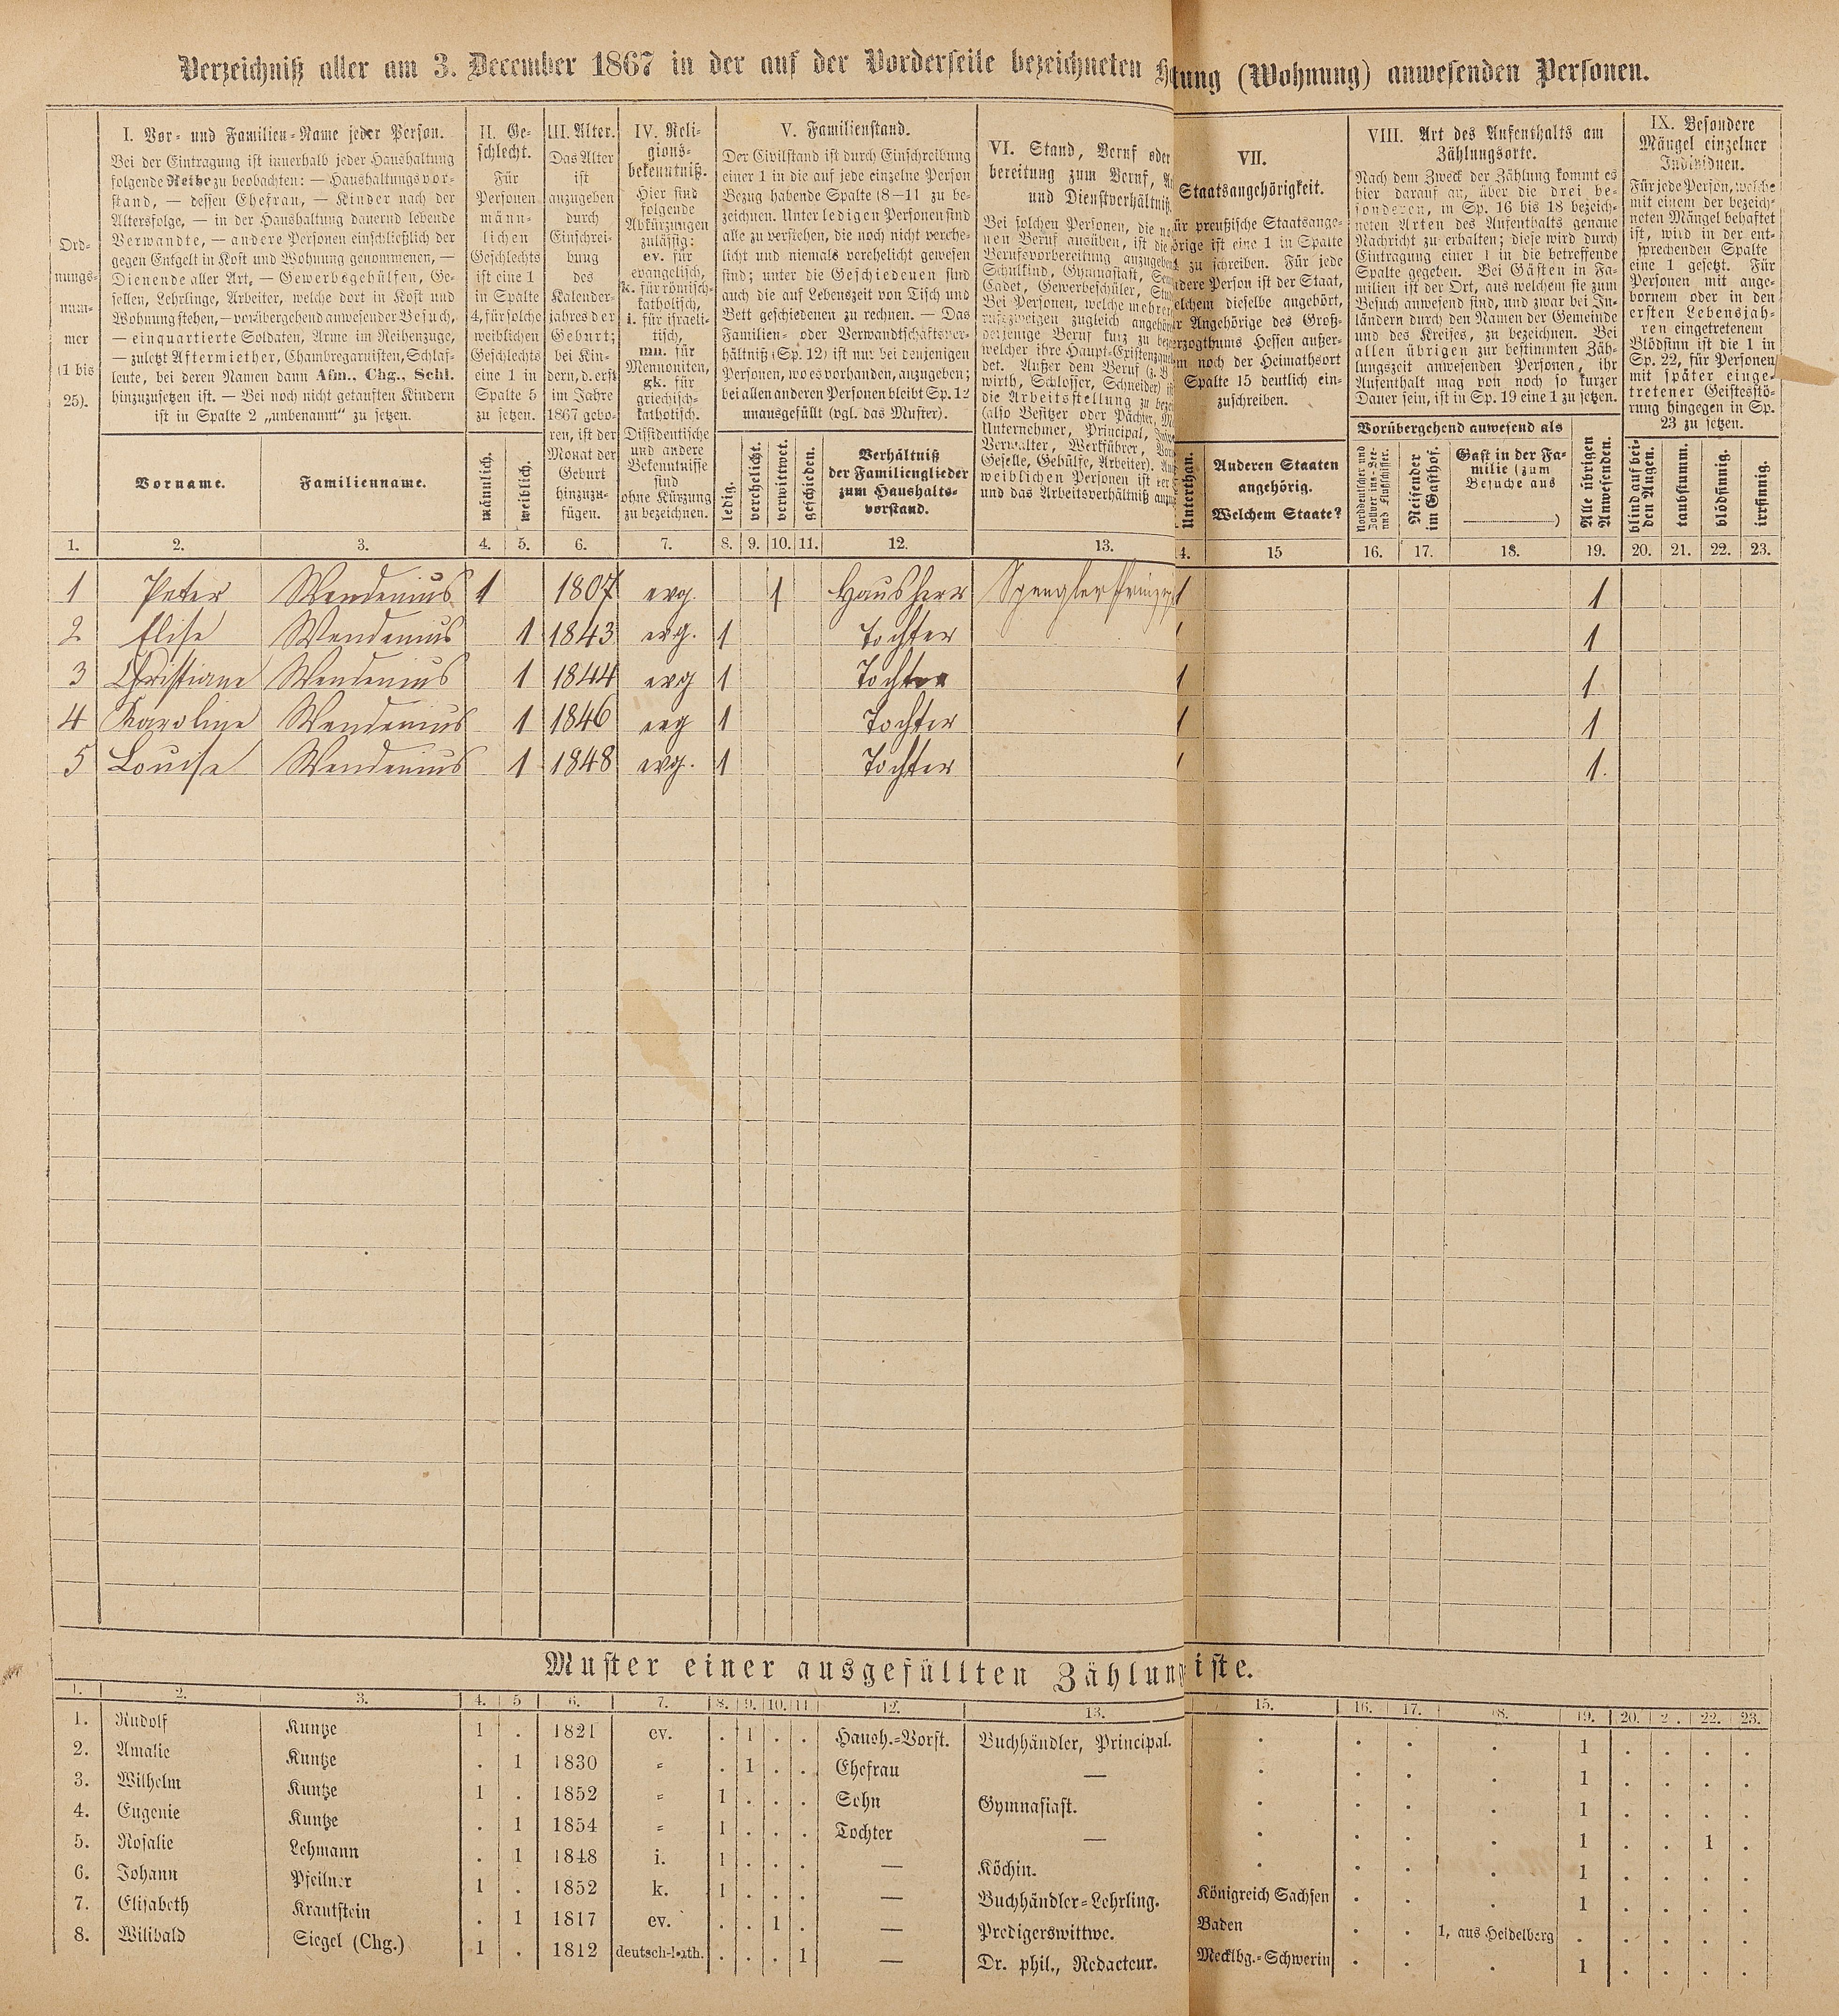 Verzeichniß aller am 3. December 1867 in der auf der Vorderseite bezeichneten H tung (Wohnung) anwesenden Personen.
Ord-
nungs-
num-
mer
(1 bis
25).
I. Vor- und Familien-Name jeder Person.
Bei der Eintragung ist innerhalb jeder Haushaltung
folgende Reihe zu beobachten: — Haushaltungsvor-
stand, — dessen Ehefrau, — Kinder nach der
Altersfolge, — in der Haushaltung dauernd lebende
Verwandte, — andere Personen einschließlich der
gegen Entgelt in Kost und Wohnung genommenen, —
Dienende aller Art, — Gewerbsgehülfen, Ge-
sellen, Lehrlinge, Arbeiter, welche dort in Kost und
Wohnung stehen, — vorübergehend anwesender Besuch,
— einquartierte Soldaten, Arme im Reihenzuge,
— zuletzt Aftermiether, Chambregarnisten, Schlaf-
leute, bei deren Namen dann Afm., Chg., Schl.
hinzuzusetzen ist. — Bei noch nicht getauften Kindern
ist in Spalte 2 „unbenannt“ zu setzen.
Vorname.
Familienname.
II. Ge-
schlecht.
Für
Personen
männ-
lichen
Geschlechts
ist eine 1
in Spalte
4, für solche
weiblichen
Geschlechts
eine 1 in
Spalte 5
zu setzen.
männlich.
weiblich.
III. Alter.
Das Alter
ist
anzugeben
durch
Einschrei-
bung
des
Kalender-
jahres der
Geburt;
bei Kin-
dern, d. erst
im Jahre
1867 gebo-
ren, ist der
Monat der
Geburt
hinzuzu-
fügen.
IV. Reli-
gions-
bekenntniß.
Hier sind
folgende
Abkürzungen
zulässig:
ev. für
evangelisch,
k. für römisch-
katholisch,
i. für israeli-
tisch,
mn. für
Mennoniten,
gk. für
griechisch-
katholisch.
Dissidentische
und andere
Bekenntnisse
sind
ohne Kürzung
zu bezeichnen.
V. Familienstand.
Der Civilstand ist durch Einschreibung
einer 1 in die auf jede einzelne Person
Bezug habende Spalte (8—11 zu be-
zeichnen. Unter ledigen Personen sind
alle zu verstehen, die noch nicht verehe-
licht und niemals verehelicht gewesen
sind; unter die Geschiedenen sind
auch die auf Lebenszeit von Tisch und
Bett geschiedenen zu rechnen. — Das
Familien- oder Verwandtschaftsver-
hältniß (Sp. 12) ist nur bei denjenigen
Personen, wo es vorhanden, anzugeben;
bei allen anderen Personen bleibt Sp. 12
unausgefüllt (vgl. das Muster).
ledig.
verehelicht.
verwittwet.
geschieden.
Verhältniß
der Familienglieder
zum Haushalts-
vorstand.
VI. Stand, Beruf oder
bereitung zum Beruf,
und Dienstverhältniß.
Bei solchen Personen, die
nen Beruf ausüben, ist die
Berufsvorbereitung anzugeben
Schulkind, Gymnasiast,
Cadet, Gewerbeschüler,
Bei Personen, welche mehrer
rufszweigen zugleich
derjenige Beruf kurz zu
welcher ihre
det. Außer dem Beruf (z. B
wirth, Schlosser, Schneider)
die Arbeitsstellung zu
(also Besitzer oder Pächter,
Unternehmer, Principal,
Verwalter, Werkführer,
Geselle, Gehülfe, Arbeiter).
weiblichen Personen ist
und das Arbeitsverhältniß
VII.
Staatsangehörigkeit.
ür preußische Staatsange-
örige ist eine 1 in Spalte
4 zu schreiben. Für jede
ndere Person ist der Staat,
elchem dieselbe angehört,
r Angehörige des Groß-
erzogthums Hessen außer-
m noch der Heimathsort
Spalte 15 deutlich ein-
zuschreiben.
Unterthan.
Anderen Staaten
angehörig.
Welchem Staate?
VIII. Art des Aufenthalts am
Zählungsorte.
Nach dem Zweck der Zählung kommt es
hier darauf an, über die drei be-
sonderen, in Sp. 16 bis 18 bezeich-
neten Arten des Aufenthalts genaue
Nachricht zu erhalten; diese wird durch
Eintragung einer 1 in die betreffende
Spalte gegeben. Bei Gästen in Fa-
milien ist der Ort, aus welchem sie zum
Besuch anwesend sind, und zwar bei In-
ländern durch den Namen der Gemeinde
und des Kreises, zu bezeichnen. Bei
allen übrigen zur bestimmten Zäh-
lungszeit anwesenden Personen, ihr
Aufenthalt mag von noch so kurzer
Dauer sein, ist in Sp. 19 eine 1 zu setzen.
Vorübergehend anwesend als
Norddeutscher und
Zollvereins-See-
und Flußschiffer.
Reisender
im Gasthof.
Gast in der Fa-
milie (zum
Besuche aus
)
Alle übrigen
Anwesenden.
IX. Besondere
Mängel einzelner
Individuen.
Für jede Person, welche
mit einem der bezeich-
neten Mängel behaftet
ist, wird in der ent-
sprechenden Spalte
eine 1 gesetzt. Für
Personen mit ange-
bornem oder in den
ersten Lebensjah-
ren eingetretenem
Blödsinn ist die 1 in
Sp. 22, für Personen
mit später einge-
tretener Geistesstö-
rung hingegen in Sp.
23 zu setzen.
blind auf bei-
den Augen.
taubstumm.
blödsinnig.
irrsinnig.
1. 2. 3. 4. 5. 6. 7. 8. 9. 10. 11. 12. 13. 4. 15 16. 17. 18. 19. 20. 21. 22. 23.
1 Peter Wendenius 1 1807 evg 1 Hausherr Spengler 1 1
2 Elise Wendenius 1 1843 evg. 1 Tochter 1 1
3 Christiane Wendenius 1 1844 evg 1 Tochter 1 1
4 Karoline Wendenius 1 1846 evg 1 Tochter 1 1
5 Louise Wendenius 1 1848 evg. 1 Tochter 1 1.
Muster einer ausgefüllten Zählung iste.
1. 2. 3. 4. 5 6. 7. 8. 9. 10. 11 12. 13. 15. 16. 17. 18. 19. 20. 2 . 22. 23.
1. Rudolf Kuntze 1 . 1821 ev. . 1 . . Haush.-Vorst. Buchhändler, Principal. . . . . 1 . . . .
2. Amalie Kuntze . 1 1830 „ . 1 . . Ehefrau — . . . . 1 . . . .
3. Wilhelm Kuntze 1 . 1852 „ 1 . . . Sohn Gymnasiast. . . . . 1 . . . .
4. Eugenie Kuntze . 1 1854 „ 1 . . . Tochter — . . . . 1 . . 1 .
5. Rosalie Lehmann . 1 1848 i. 1 . . . — Köchin. . . . . 1 . . . .
6. Johann Pfeilner 1 . 1852 k. 1 . . . — Buchhändler-Lehrling. Königreich Sachsen . . . 1 . . . .
7. Elisabeth Krautstein . 1 1817 ev. . . 1 . — Predigerswittwe. Baden . . 1, aus Heidelberg . . . . .
8. Wilibald Siegel (Chg.) 1 . 1812 deutsch-kath. . . . 1 — Dr. phil., Redacteur. Mecklbg.-Schwerin . . . 1 . . . .